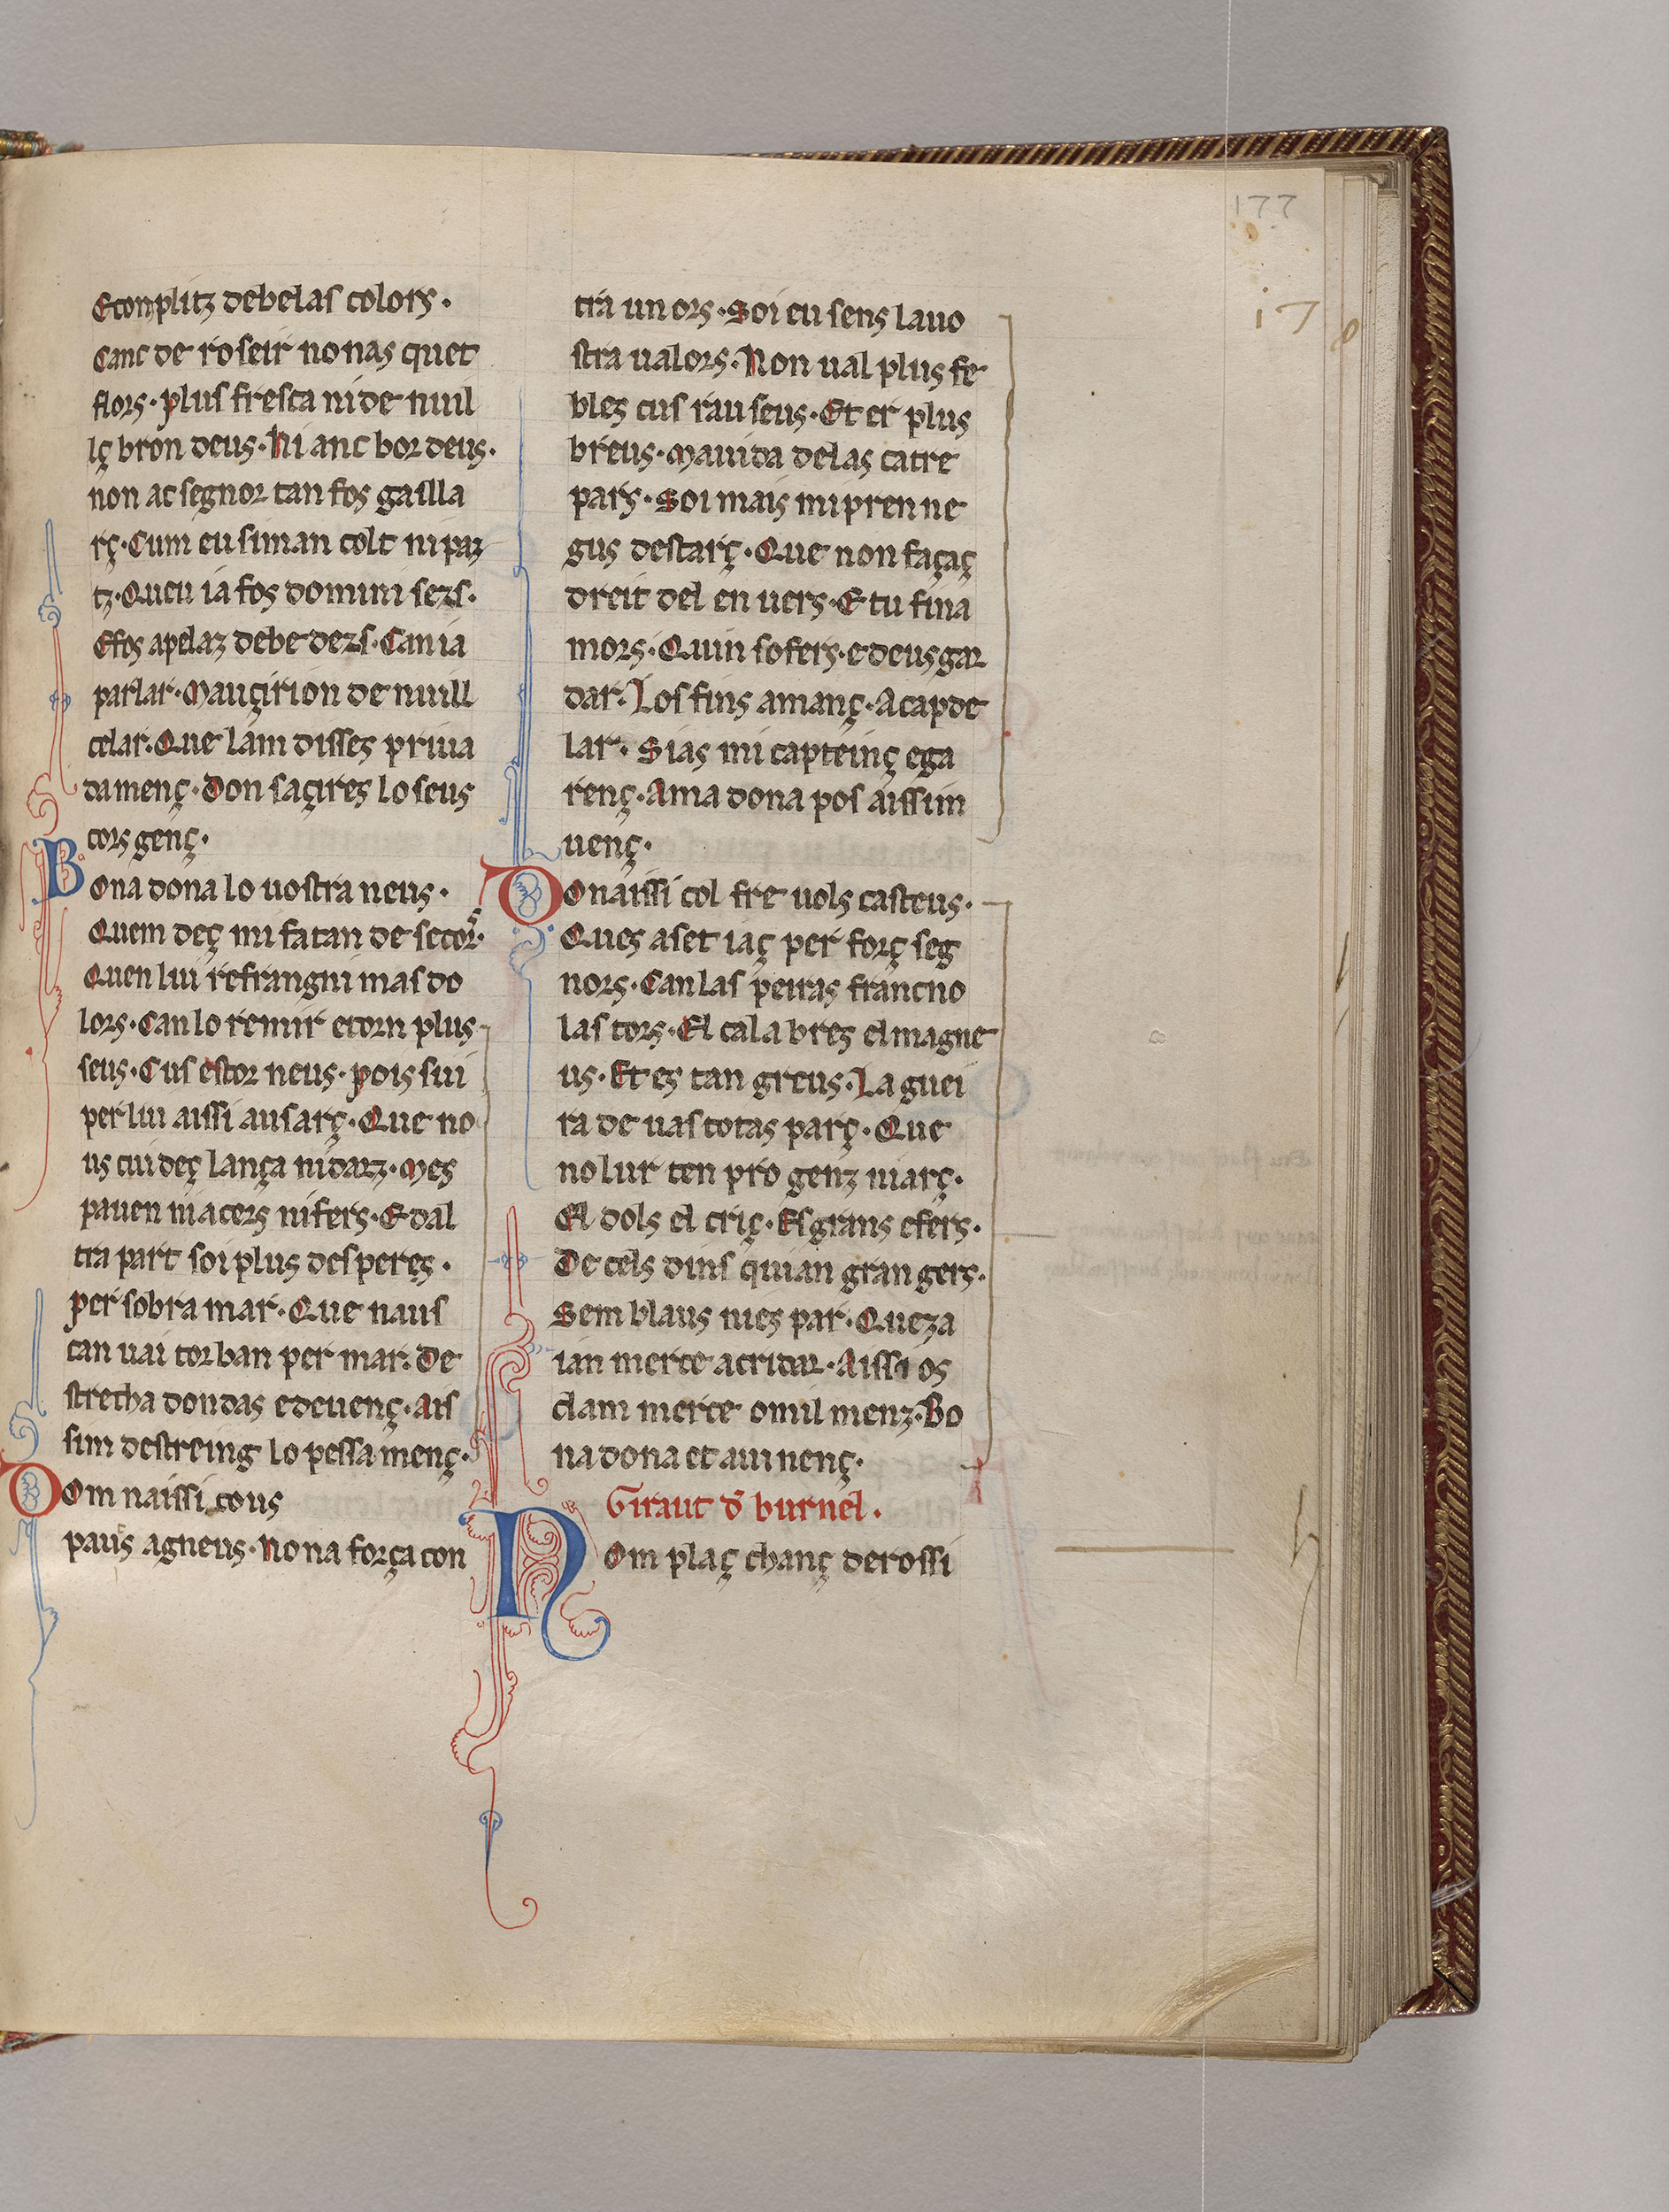 177
17
Econplitz debelas colors.
Canc de roseir nonas quet
flors. plus fresca nide nuil
lç bron deus. Ni anc bor deus.
non ac segnor tan fos gailla
rç. Cum eu siman colt ni par
tz. Queu ia fos domini sers.
Efos apelaz debe dezs. Can ia
parlar. Mauçirion de nuill
celar. Que lam disses priua
damenç. Don saçires lo seus
cors genç.
Bona dona lo uostra neus.
Quem deç mi fa tan de secors.
Quen lui refrangni mas do
lors. Can lo remir etorn plus
seus. Cus estor neus. pois sui
per lui aissi ausarç. Que no
us cuideç lança ni darz. Mes
pauen niacers nifers. E dal
tra part soi plus desperes.
per sobra mar. Que naus
can uai torban per mar. De
strecha dondas edeuenç. Ais
sim destreing lo pessamenç.
Dom naissi cous
paus agneus. No na força con
tra un ors. Soi eu sens lauo
stra ualors. Non ual plus fe
bles cus rauseus. Et er plus
breus. Mauida delas catre
pars. Soi mais mi pren ne
gus destarç. Que non façaç
dreit del en uers. E tu fina
mors. Quin sofers. e deus gar
dar. Los fins amanç. Acapde
lar. Sias mi capteinç ega
renç. Ama dona pos aissim
uenç.
Donaissi col fre uols casteus.
Ques aset iaç per forç seg
nors. Can las peiras francno
las tors. El cala bres el magne
us. Et es tan greus. La guei
ra de uas totas parç. Que
no lur ten pro genz niarç.
El dols el criç. Es grans efers.
De cels dins quian gran gers.
Sem blaus nies par. Queza
ian merce acridar. Aissi os
clam merce omil menz. Bo
na dona et auinenç.
Giraut d' burnel.
Nom plaç chanç derossi